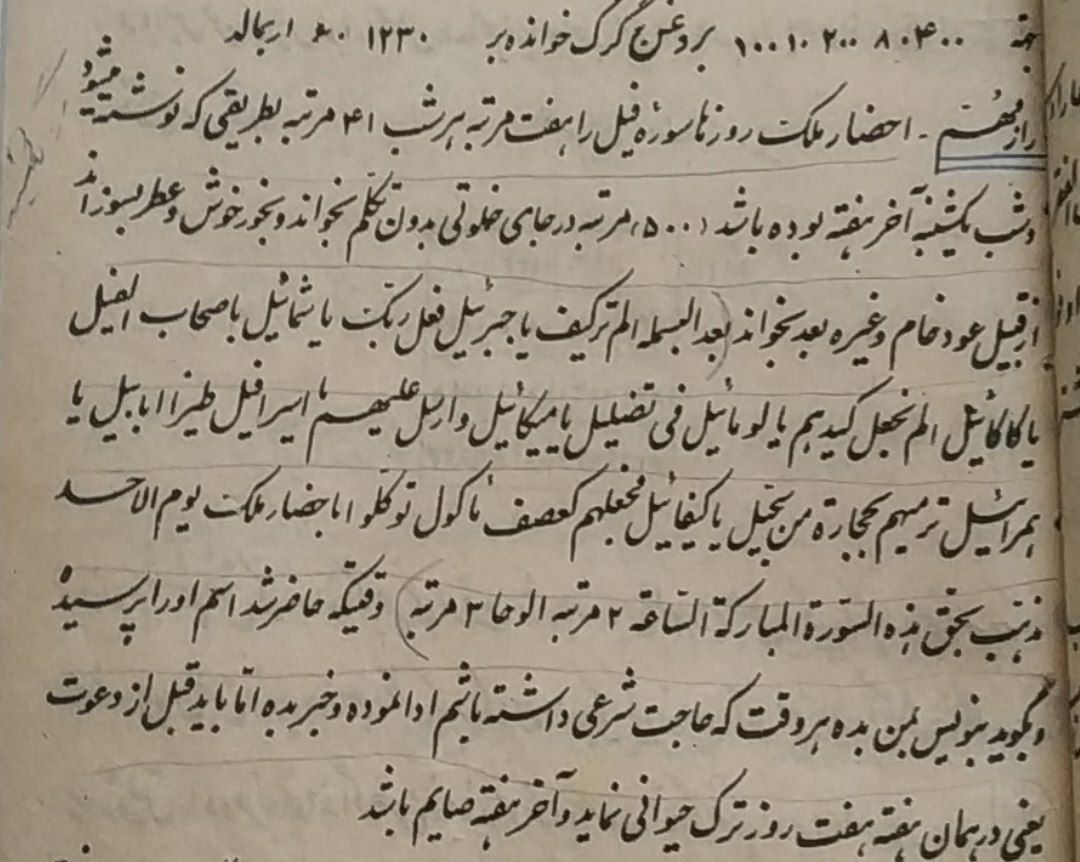 ۱۰۰ ۱۰ ۲۰۰ ۸۰ ۴۰۰ بروغن گرگ خوانده بر ۱۲۳۰ ۶۰
راز مهم - احضار ملک روزها سوره فیل را هفت مرتبه هر شب ۴۱ مرتبه بطریقی که نوشته میشود
و شب یکشنبه آخر هفته بوده باشد (۵۰۰) مرتبه در جای خلوتی بدون تکلم بخواند و بخور خوش و عطر بسوزاند
از قبیل عود خام و غیره بعد بخواند (بعد البسمله الم ترکیف یا جبرئیل فعل ربک یا شمائیل باصحاب الفیل
یا کاکائیل الم یجعل کیدهم یا لومائیل فی تضلیل یا میکائیل و ارسل علیهم یا اسرافیل طیرا ابابیل یا
همرائیل ترمیهم بحجارة من سجیل یا کیفائیل فجعلهم کعصف مأکول توکلوا باحضار ملک یوم الاحد
مذهب بحق هذه السورة المبارکة الساعة ۲ مرتبه الوحا ۳ مرتبه) وقتیکه حاضر شد اسم او را پرسیده
و بگوید بنویس بمن بده هر وقت که حاجت شرعی داشته باشم ادا نموده و خبر بده اما باید قبل از دعوت
یعنی در همان هفته هفت روز ترک حیوانی نماید و آخر هفته صایم باشد